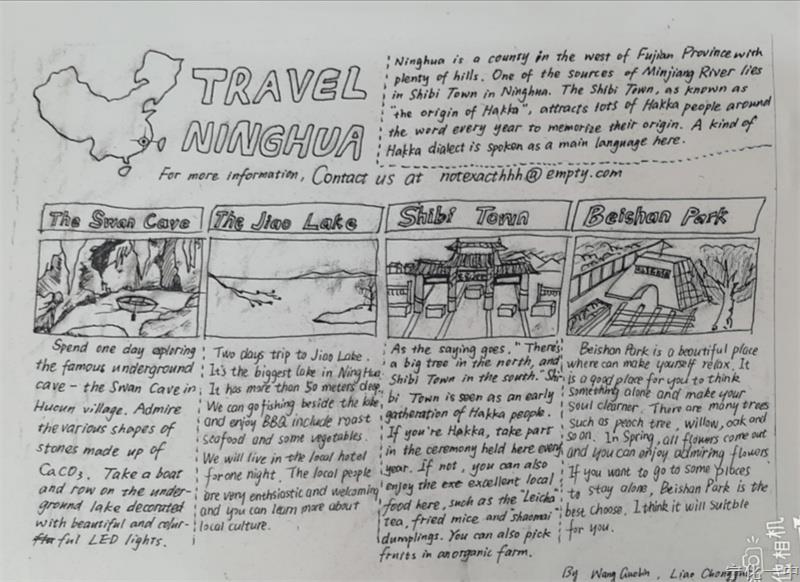 TRAVEL
NINGHUA
Ninghua is a county in the west of Fujian Province with
plenty of hills. One of the sources of Minjiang River lies
in Shibi Town in Ninghua. The Shibi Town, as known as
"the origin of Hakka", attracts lots of Hakka people around
the word every year to memorize their origin. A kind of
Hakka dialect is spoken as a main language here.
For more information, Contact us at notexacthhh@empty.com
The Swan Cave
Spend one day exploring
the famous underground
cave - the Swan Cave in
Hucun village. Admire
the various shapes of
stones made up of
CaCO3. Take a boat
and row on the under-
ground lake decorated
with beautiful and colur-
ful LED lights.
The Jiao Lake
Two days trip to Jiao Lake.
It's the biggest lake in Ninghua.
It has more than 50 meters deep.
We can go fishing beside the lake
and enjoy BBQ include roast
seafood and some vegetables.
We will live in the local hotel
for one night. The local people
are very enthsiastic and welcoming
and you can learn more about
local culture.
Shibi Town
As the saying goes. "There's
a big tree in the north, and
Shibi Town in the south." Shi-
bi Town is seen as an early
gatheration of Hakka people.
If you're Hakka, take part
in the ceremony held here every
year. If not, you can also
enjoy the excellent local
food here, such as the "Leicha"
tea, fried mice and "shaomai"
dumplings. You can also pick
fruits in an organic farm.
Beishan Park
Beishan Park is a beautiful place
where can make yourself relax. It
is a good place for you to think
something alone and make your
soul clearner. There are many trees
such as peach tree, willow, oak and
so on. In Spring, all flowers come out
and you can enjoy admiring flowers
If you want to go to some places
to stay alone, Beishan Park is the
best choose. I think it will suitble
for you.
By Wang Liao
相机